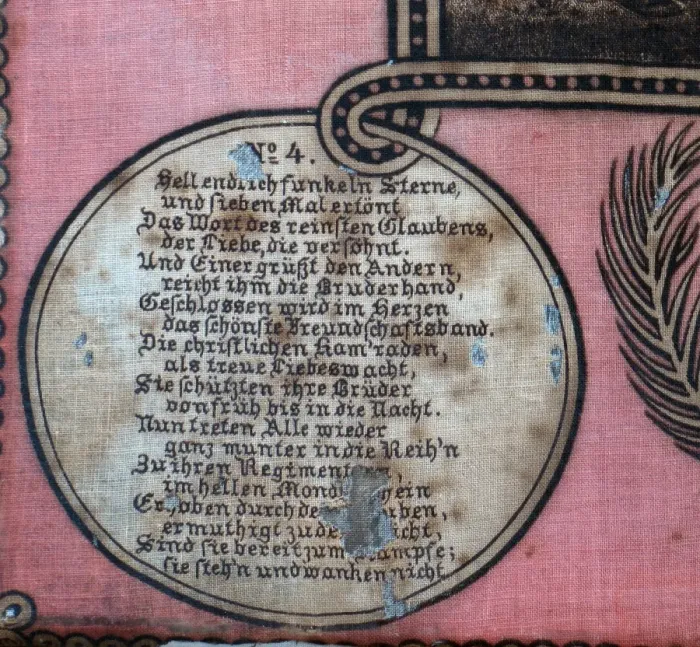 No 4.
Hell endlich funkeln Sterne,
und sieben Mal ertönt
Das Wort des reinsten Glaubens,
der Liebe, die versöhnt.
Und Einer grüßt den Andern,
reicht ihm die Bruderhand,
Geschlossen wird im Herzen
das schönste Freundschaftsband.
Die christlichen Kam'raden,
als treue Liebeswacht,
Sie schützten ihre Brüder
von früh bis in die Nacht.
Nun treten Alle wieder
ganz munter in die Reih'n
Zu ihren
im hellen
durch
ermuthigt
Sind sie bereit zum
sie steh'n und wanken nicht